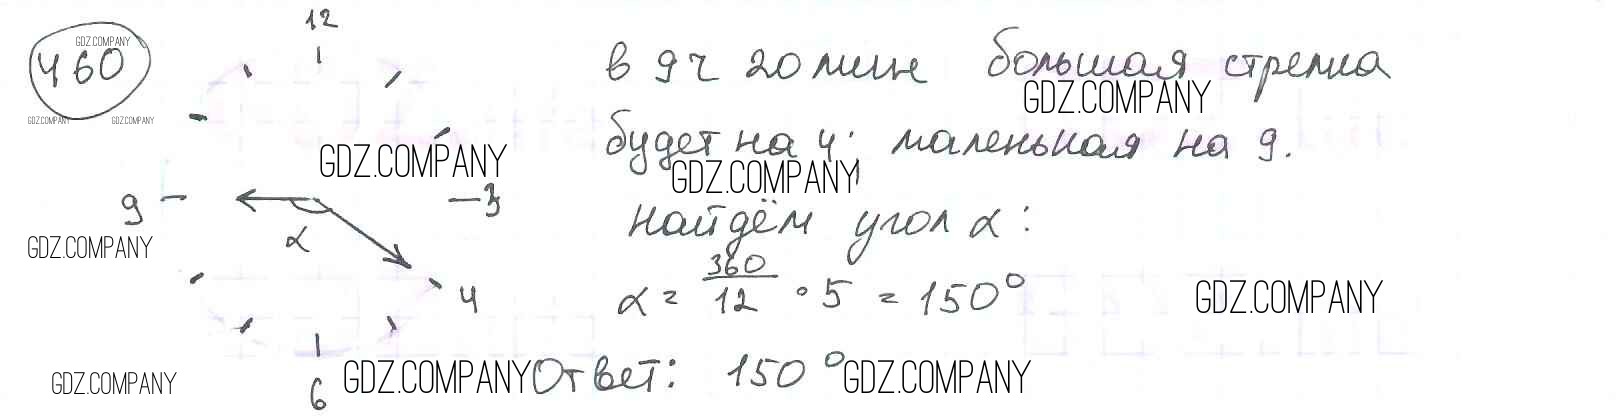 460
GDZ.COMPANY
GDZ.COMPANY
GDZ.COMPANY
12
9
3
4
6
α
GDZ.COMPANY
GDZ.COMPANY
GDZ.COMPANY
GDZ.COMPANY
в 9 ч 20 мин большая стрелка
GDZ.COMPANY
будет на 4; маленькая на 9.
GDZ.COMPANY
найдём угол α:
α = 360/12 · 5 = 150°
GDZ.COMPANY
Ответ: 150°
GDZ.COMPANY